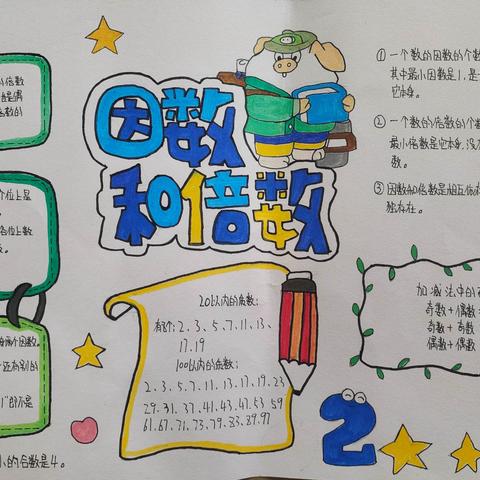 因数
和倍数
倍数
个位上是
各位上数
两个因数。
还有别的
小的合数是4。
20以内的质数：
有8个：2、3、5、7、11、13、
17、19
100以内的质数：
2、3、5、7、11、13、17、19、23
29、31、37、41、43、47、53 59
61、67、71、73、79、83、89、97
① 一个数的因数的个数
其中最小因数是1，是
它本身。
② 一个数的倍数的个
最小倍数是它本身，没
数。
③ 因数和倍数是相互依
独存在。
加减法中的
奇数+偶数
奇数+奇数
偶数+偶数
2